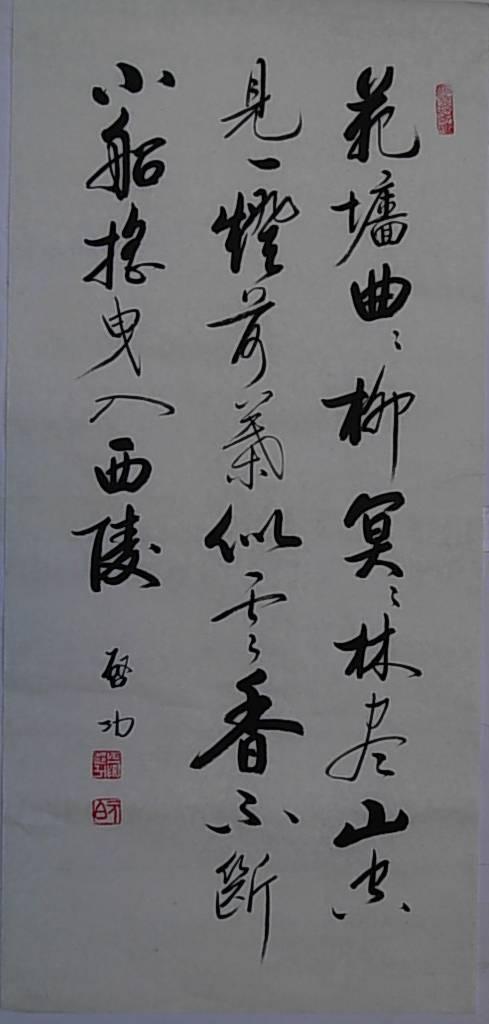 苑墻曲〻柳冥〻林尽山空
見一燈荷葉似雲香不斷
小船搖曳入西陵
啓功